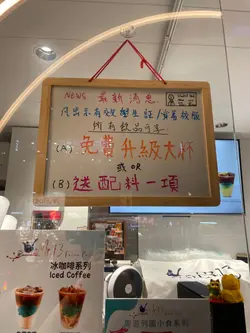 NEWS 最新消息
凡出示有效學生証/穿着校服
所有飲品可享
(A) 免費升級大杯
或 OR
(B) 送配料一項
冰咖啡系列
Iced Coffee
周遊列國小食系列